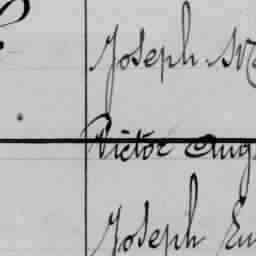 Joseph
Victor Aug
Joseph Eu